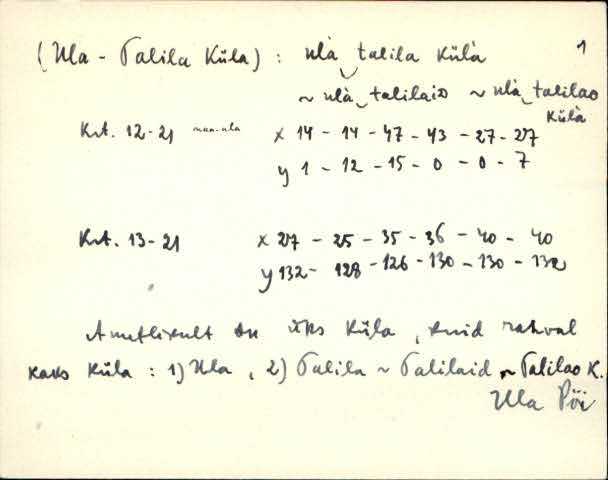 (Ula - Talila Küla) : ulà talila külà 1
~ ulà talilaiD ~ ulà talilao külà
Krt. 12-21 maa-ala x 14 - 14 - 47 - 43 - 27 - 27
y 1 - 12 - 15 - 0 - 0 - 7
Krt. 13-21 x 27 - 25 - 35 - 36 - 40 - 40
y 132 - 128 - 126 - 130 - 130 - 132
Ametlikult on üks küla, kuid rahval
kaks küla : 1) Ula, 2) Talila ~ Talilaid ~ Talilao K.
Ula Pöi